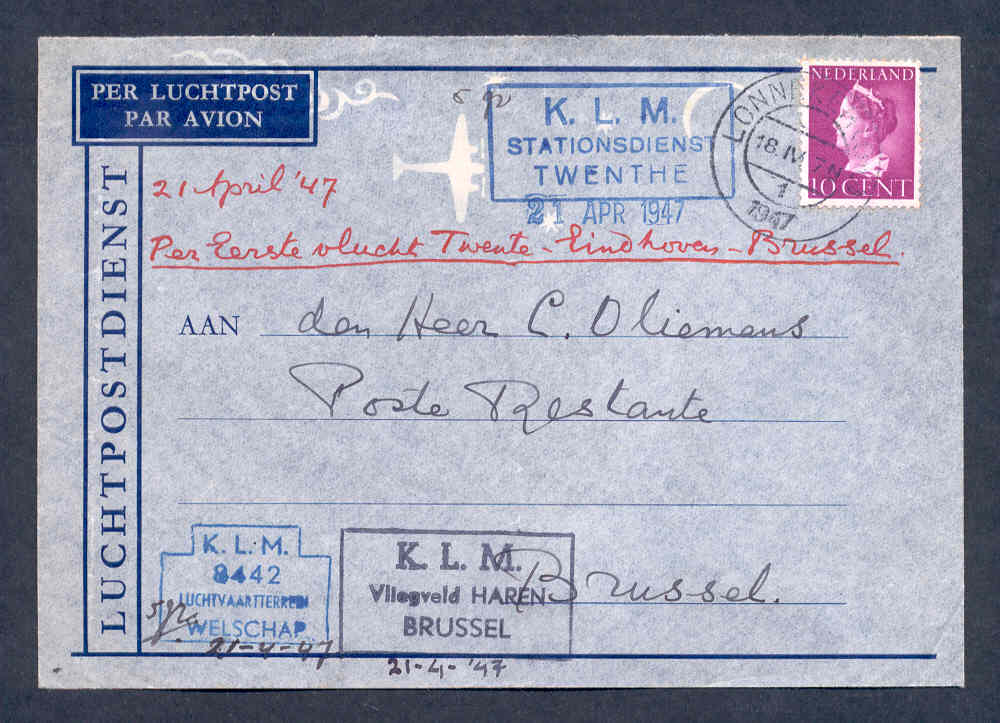 PER LUCHTPOST
PAR AVION
LUCHTPOSTDIENST
5 gr
K. L. M.
STATIONSDIENST
TWENTHE
21 APR 1947
18.IV 7N
1
1947
NEDERLAND
10 CENT
21 April '47
Per Eerste vlucht Twente - Eindhoven - Brussel.
AAN den Heer C. Oliemans
Poste Restante
Brussel.
K. L. M.
8442
LUCHTVAARTTERREIN
WELSCHAP
5 gr.
21-4-47
K. L. M.
Vliegveld HAREN
BRUSSEL
21-4-'47